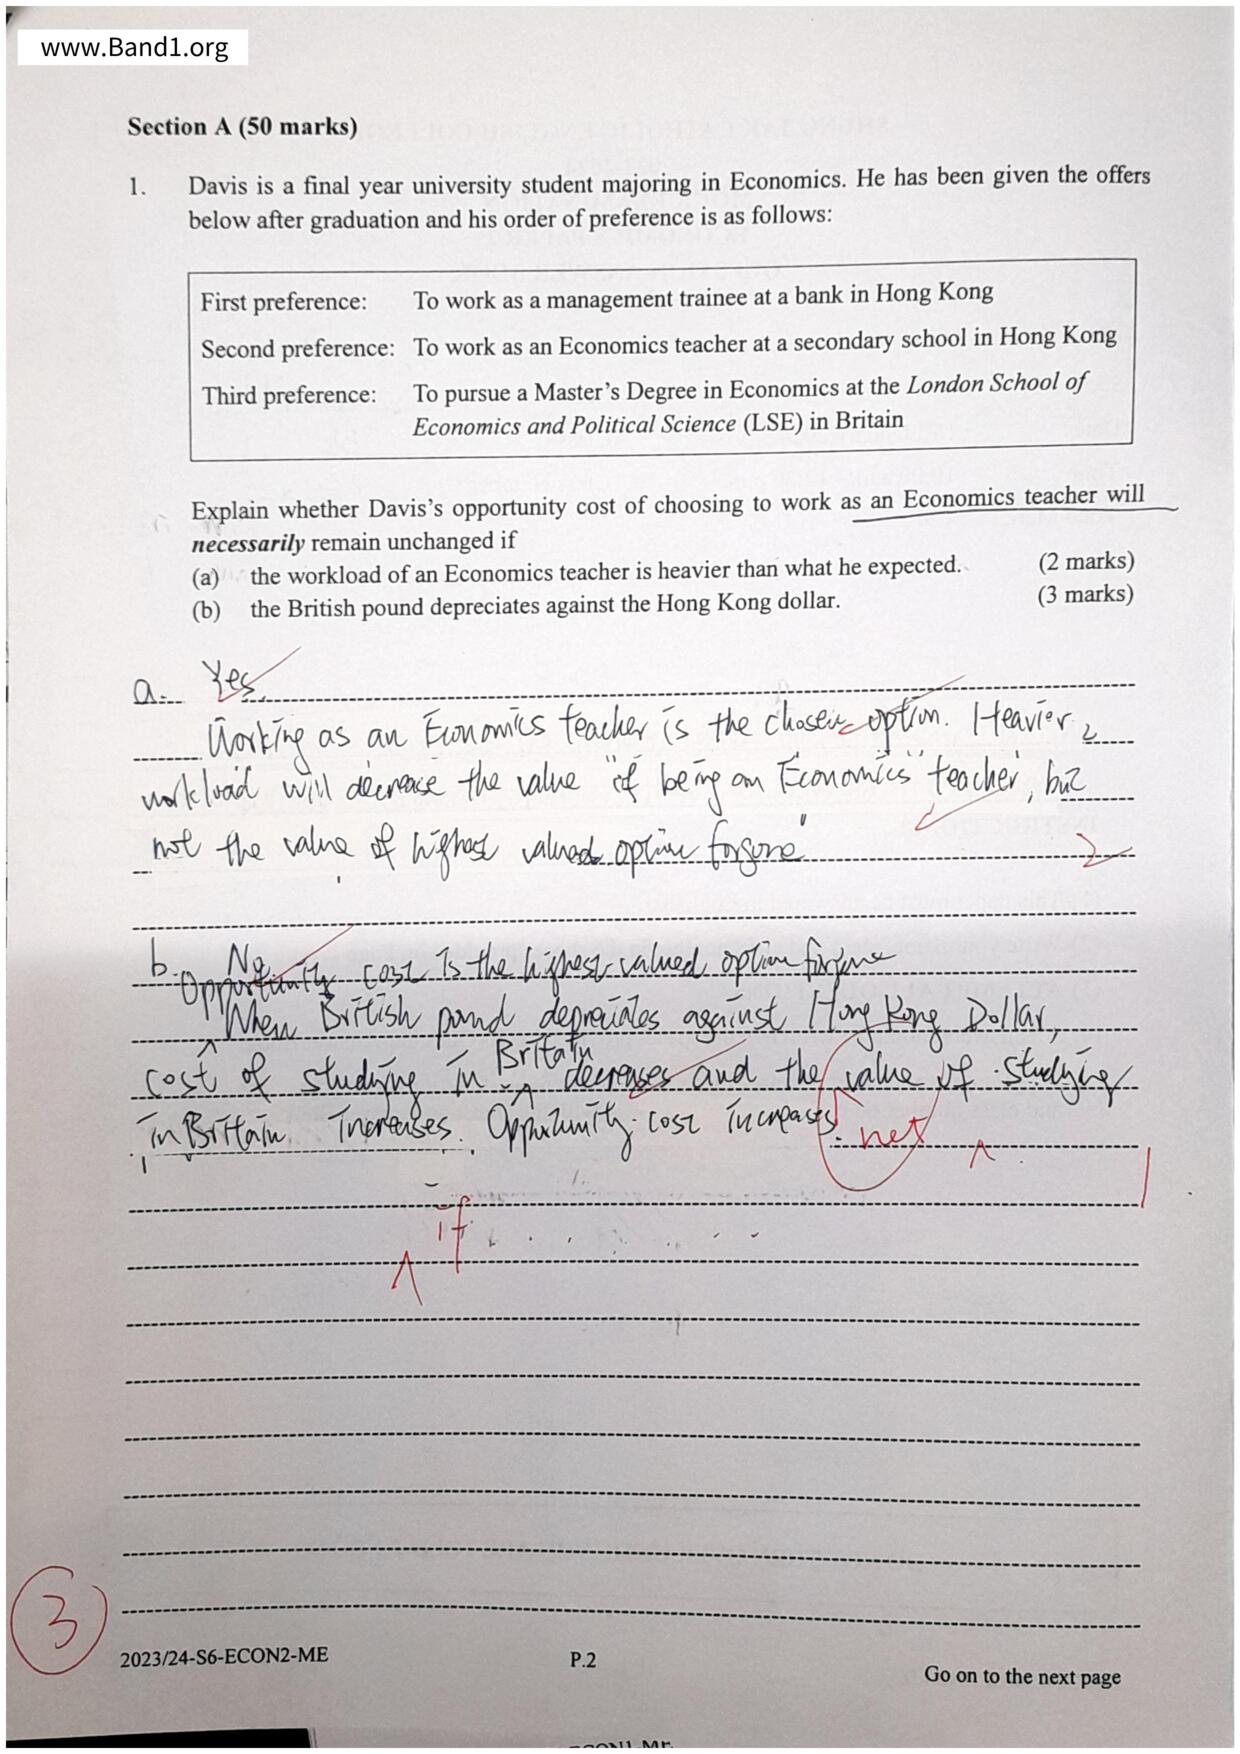 www.Band1.org
Section A (50 marks)
1. Davis is a final year university student majoring in Economics. He has been given the offers
below after graduation and his order of preference is as follows:
First preference: To work as a management trainee at a bank in Hong Kong
Second preference: To work as an Economics teacher at a secondary school in Hong Kong
Third preference: To pursue a Master's Degree in Economics at the London School of
Economics and Political Science (LSE) in Britain
Explain whether Davis's opportunity cost of choosing to work as an Economics teacher will
necessarily remain unchanged if
(a) the workload of an Economics teacher is heavier than what he expected. (2 marks)
(b) the British pound depreciates against the Hong Kong dollar. (3 marks)
a. Yes.
Working as an Economics teacher is the chosen option. Heavier 2
workload will decrease the value "of being an Economics" teacher, but
not the value of highest valued option forgone"
2
b. No
Opportunity cost is the highest-valued option forgone
When British pound depreciates against Hong Kong Dollar,
cost of studying in Britain decreases and the value of studying
in Britain increases. Opportunity cost increases.
net
1
if
3
2023/24-S6-ECON2-ME
P.2
Go on to the next page